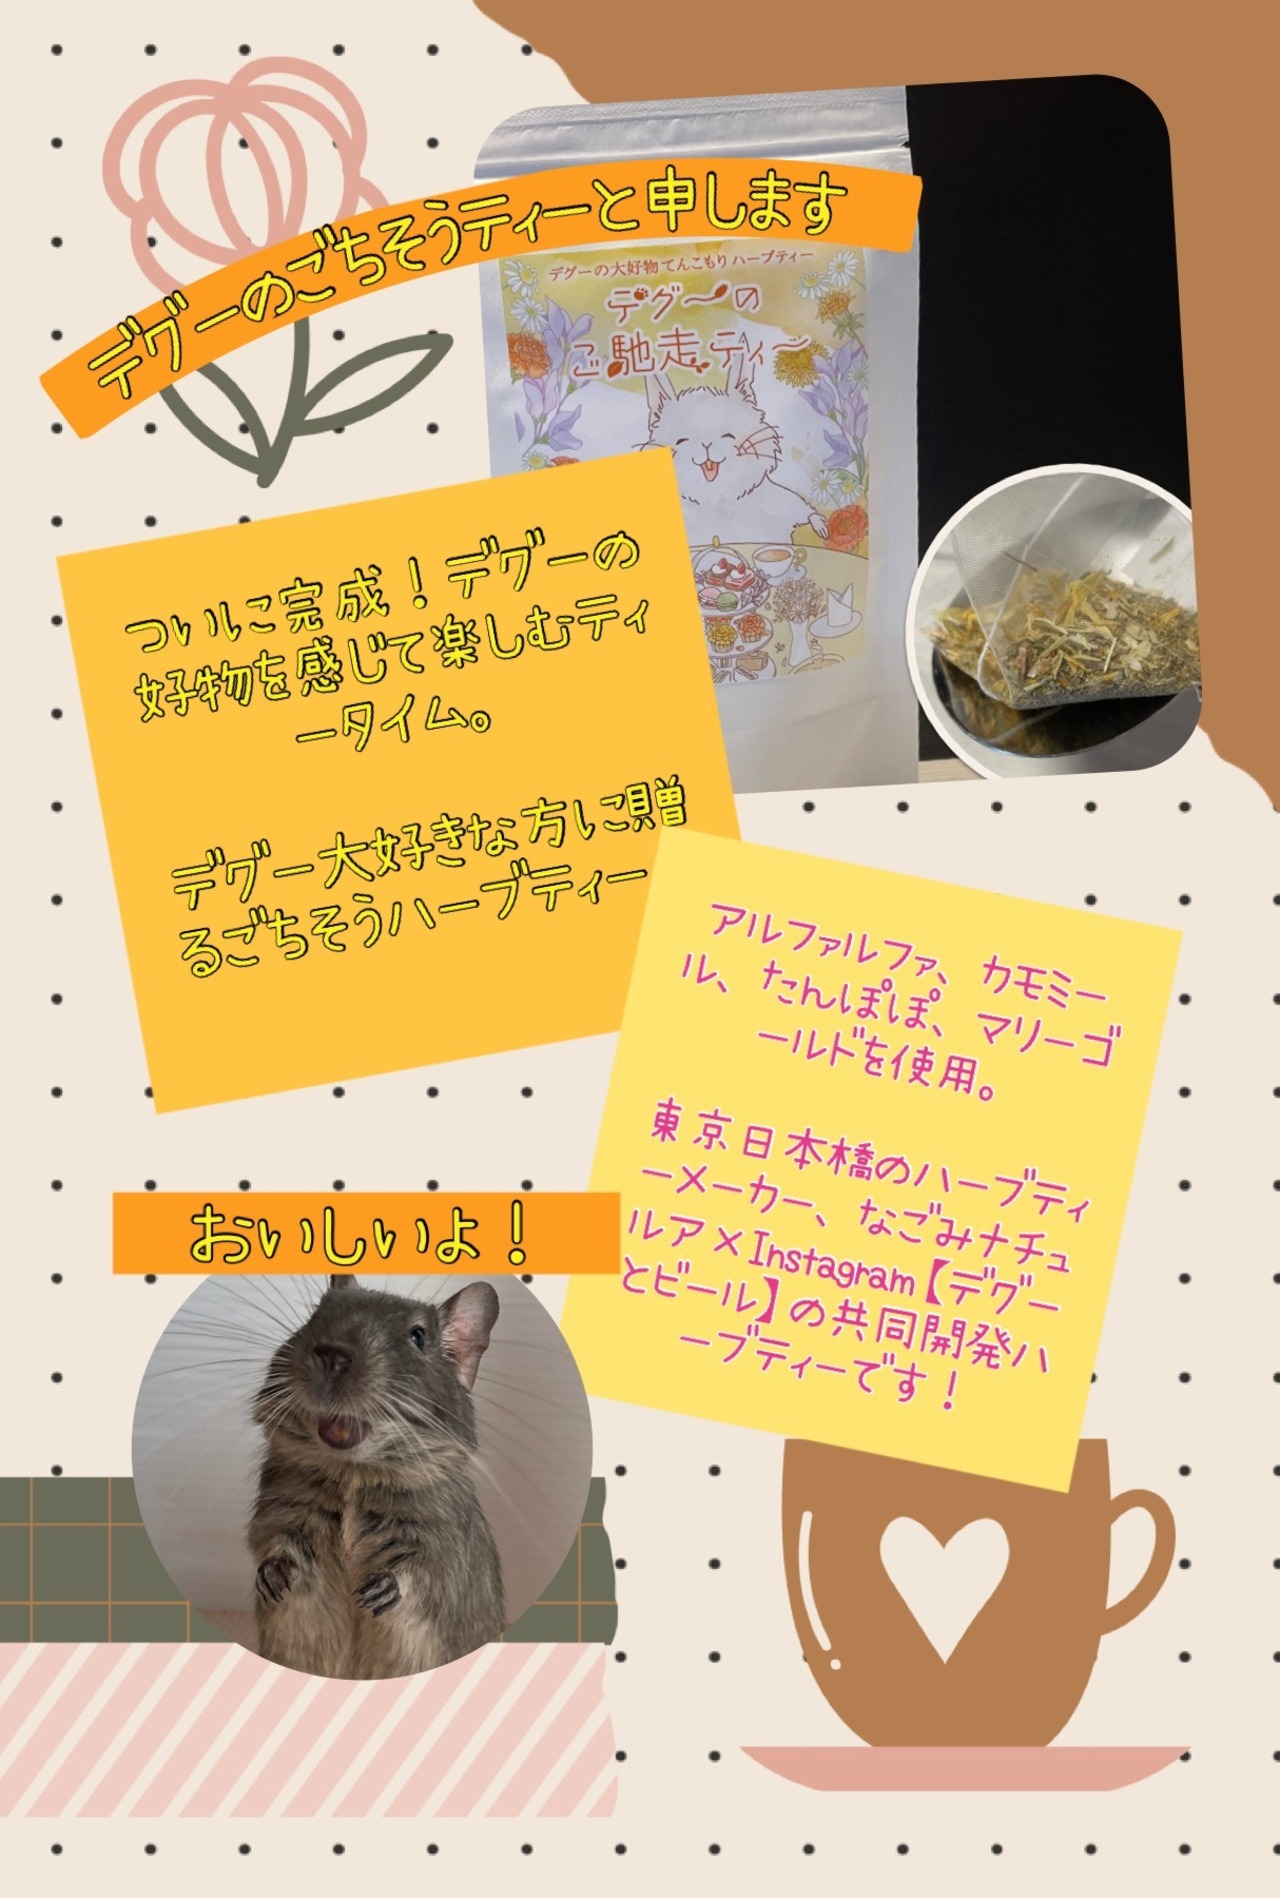 デグーのごちそうティーと申します
デグーの大好物てんこもりハーブティー
デグーの
ご馳走ティー
ついに完成！デグーの
好物を感じて楽しむティ
ータイム。
デグー大好きな方に贈
るごちそうハーブティー
アルファルファ、カモミー
ル、たんぽぽ、マリーゴ
ールドを使用。
東京日本橋のハーブティ
ーメーカー、なごみナチュ
ルア×Instagram【デグー
とビール】の共同開発ハ
ーブティーです！
おいしいよ！